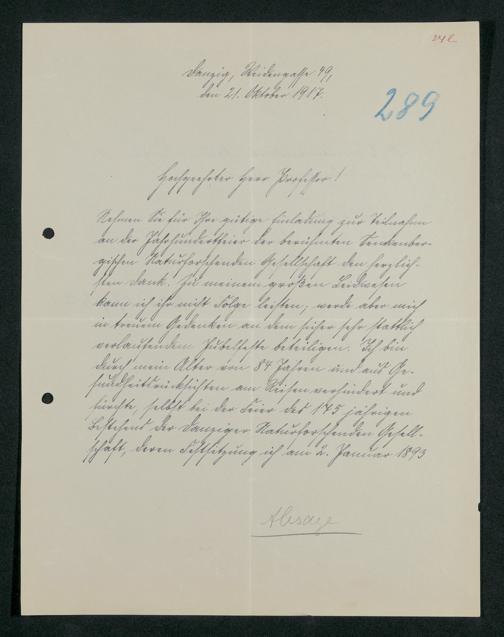 Danzig, Weidengasse 49,
den 21. Oktober 1917.
289
Hochgeehrter Herr Professor!
Nehmen Sie für Ihre gütige Einladung zur Teilnahme
an der Jahrhundertfeier der berühmten Senckenber-
gischen Naturforschenden Gesellschaft den herzlich-
sten Dank. Zu meinem großen Leidwesen
kann ich ihr nicht Folge leisten, werde aber mich
in treuem Gedenken an dem sicher sehr stattlich
verlaufendem Jubelfeste beteiligen. Ich bin
durch mein Alter von 84 Jahren und aus Ge-
sundheitsrücksichten am Reisen verhindert und
fürchte, selbst bei der Feier des 175 jährigen
Bestehens der Danziger Naturforschenden Gesell-
schaft, deren Festsitzung ich am 2. Januar 1893
Absage